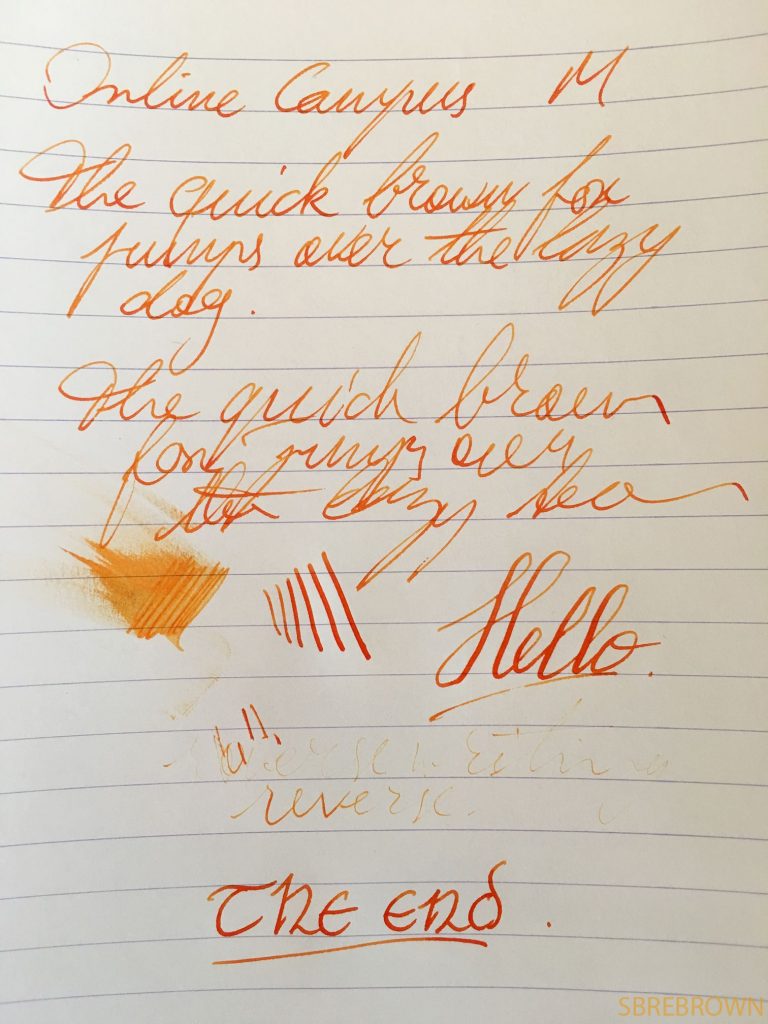 Online Campus M
The quick brown fox
jumps over the lazy
dog.
The quick brown
fox jumps over
the lazy
Hello.
reverse writing
reverse.
THE END.
SBREBROWN